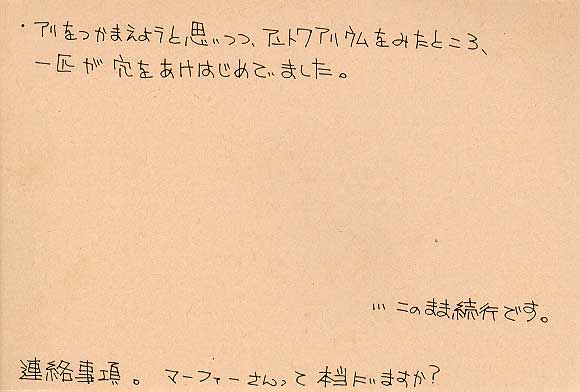 ・アリをつかまえようと思いつつ、アントクアリウムをみたところ、
一匹が穴をあけはじめていました。
… このまま続行です。
連絡事項。 マーフィーさんって本当にいますか?